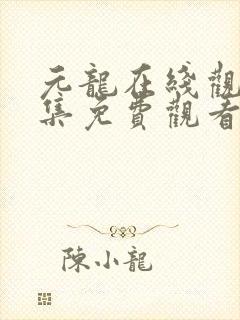 元龍在綫觀
集免費觀看
陳小龍